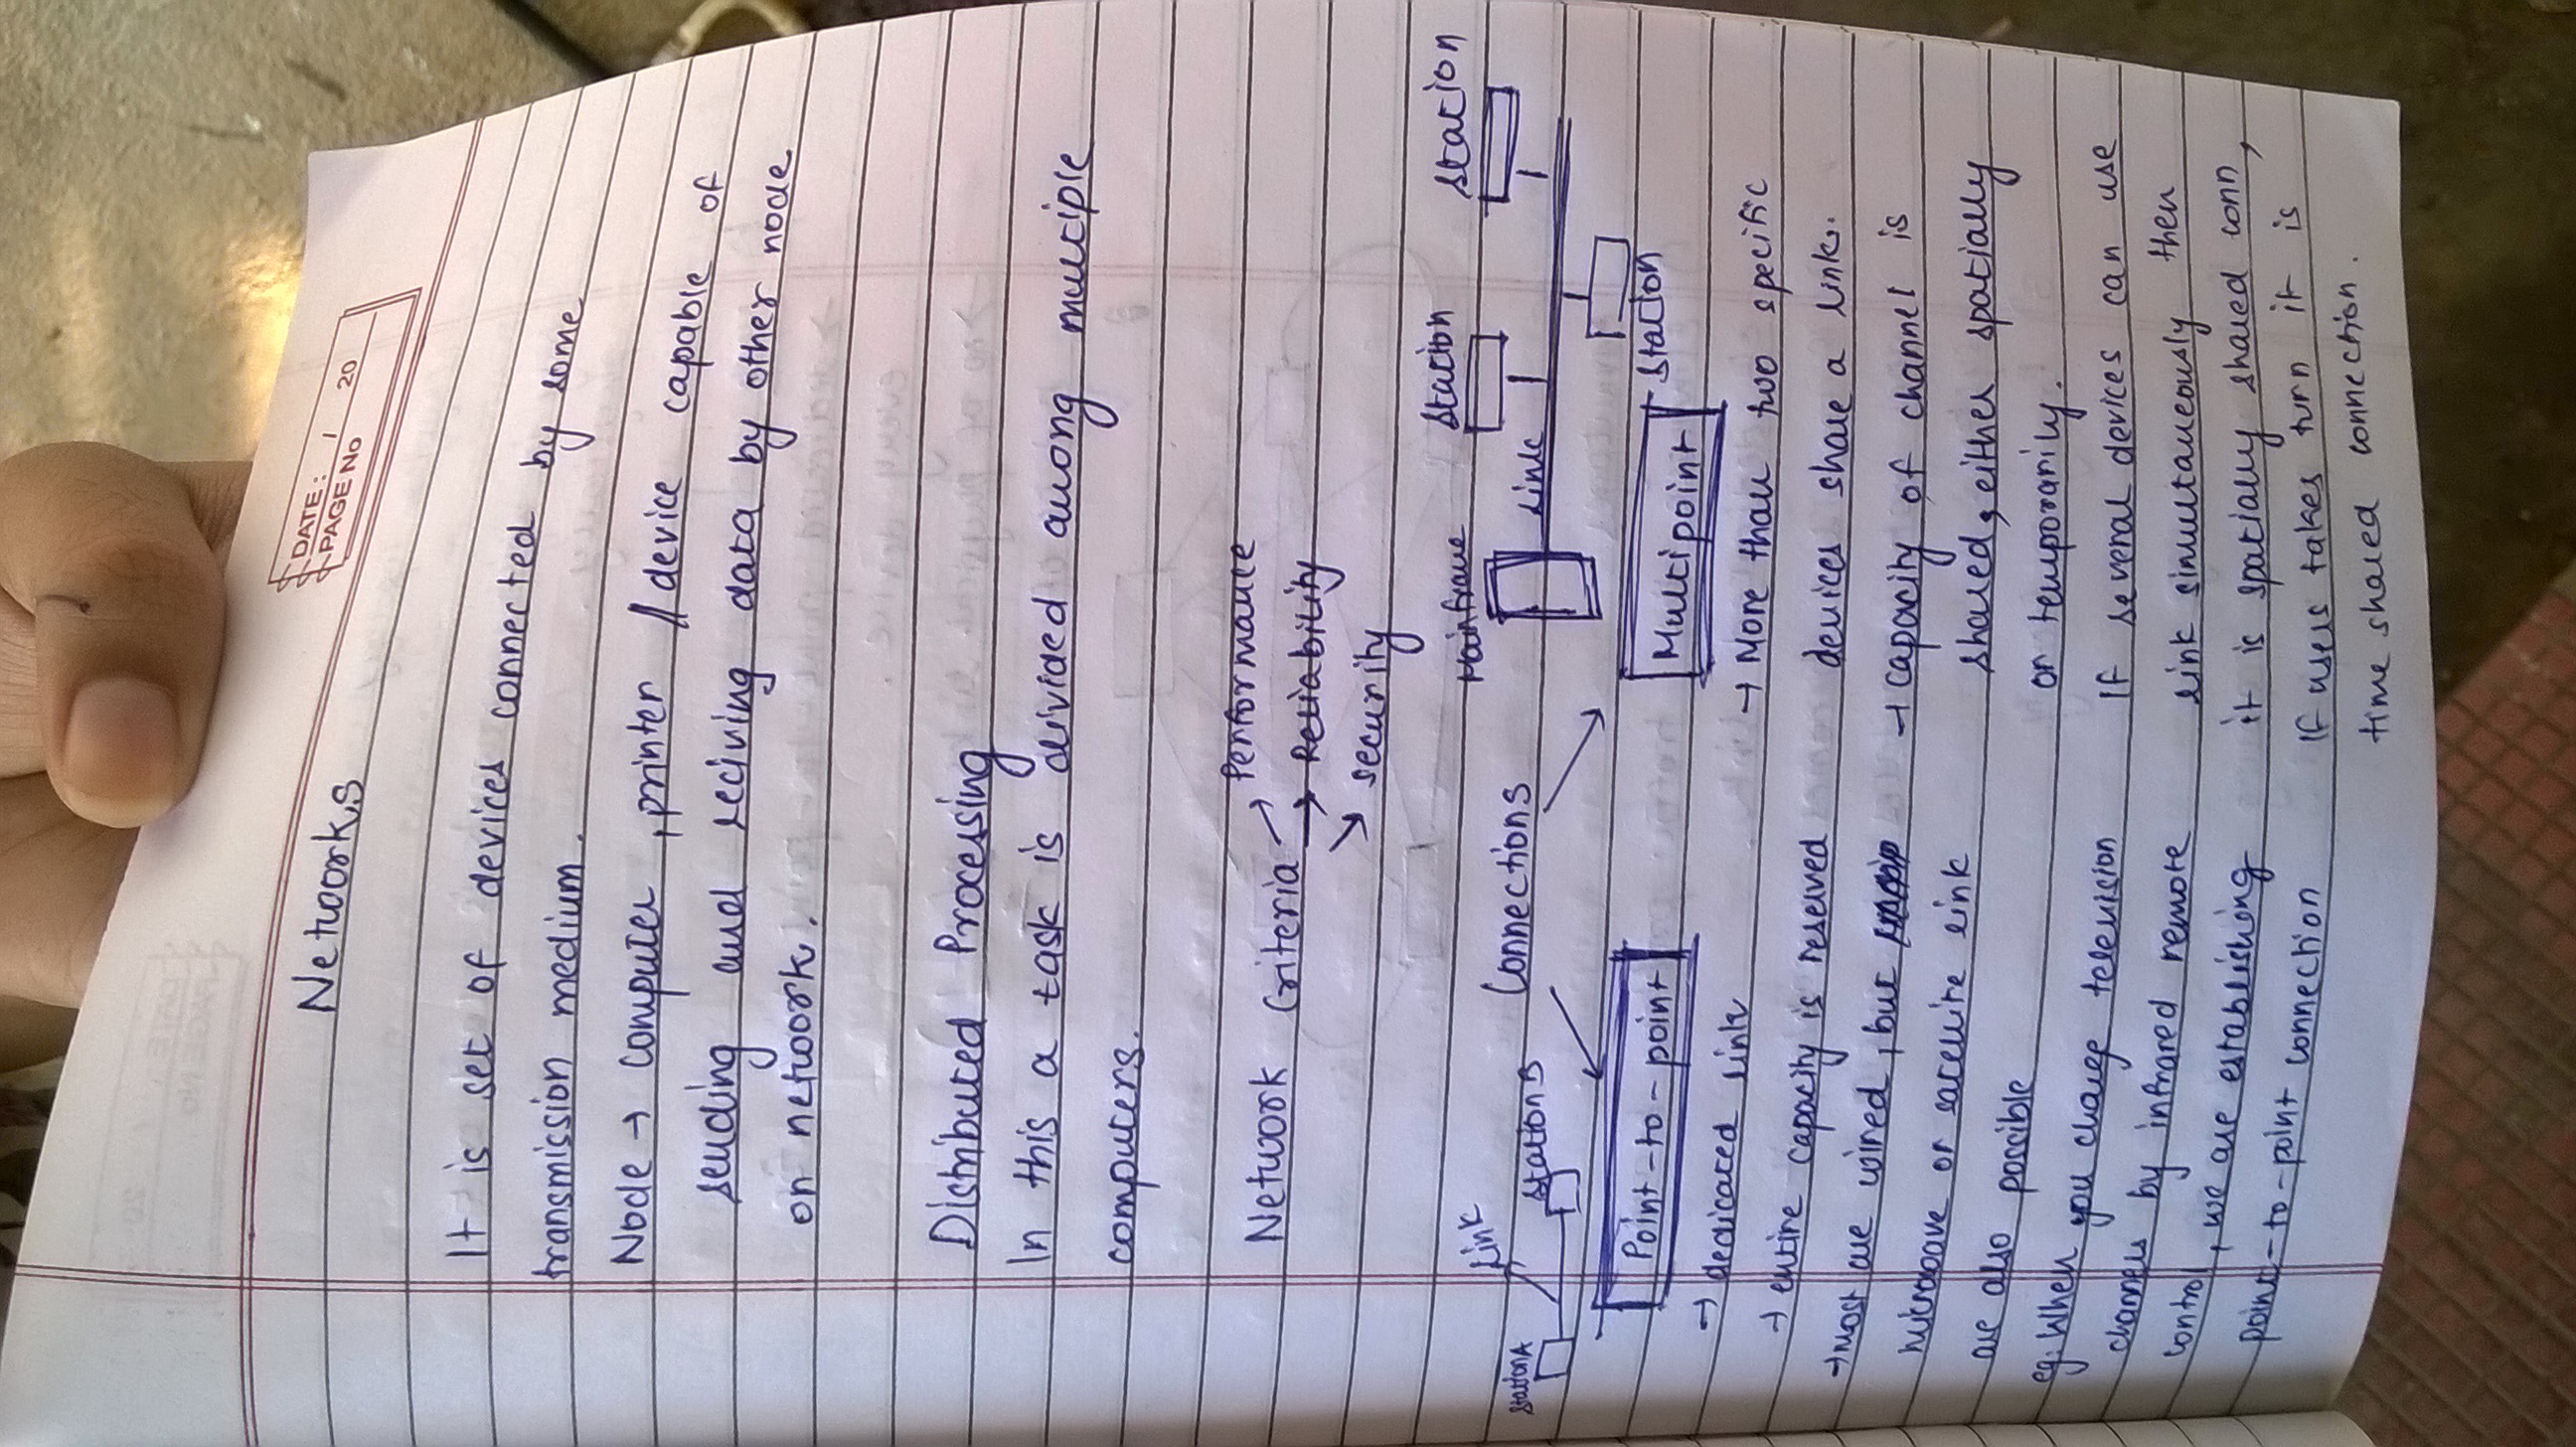 DATE: / 20
PAGE No
Networks
It is set of devices connected by some
transmission medium.
Node → computer, printer // device capable of
sending and reciving data by other node
on network.
Distributed Processing
In this a task is divided among multiple
computers.
Network Criteria → Performance
→ Reliability
→ security
Connections
Station A
Link
Station B
Mainframe
Link
Station
Station
Station
Point-to-point
→ dedicated link
→ entire capacity is reserved
→ most are wired, but
microwave or satellite link
are also possible
eg: When you change television
channels by infrared remote
control, we are establishing
point-to-point connection
Multipoint
→ More than two specific
devices share a link.
→ capacity of channel is
shared, either spatially
or temporarily.
If several devices can use
link simultaneously then
it is spatially shared conn,
If users takes turn it is
time shared connection.